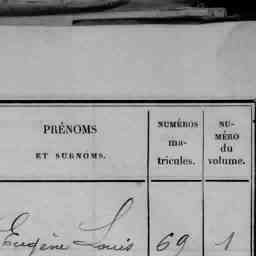 PRÉNOMS
ET SURNOMS.
NUMÉROS
ma-
tricules.
NU-
MÉRO
du
volume.
Eugène Louis 69 1